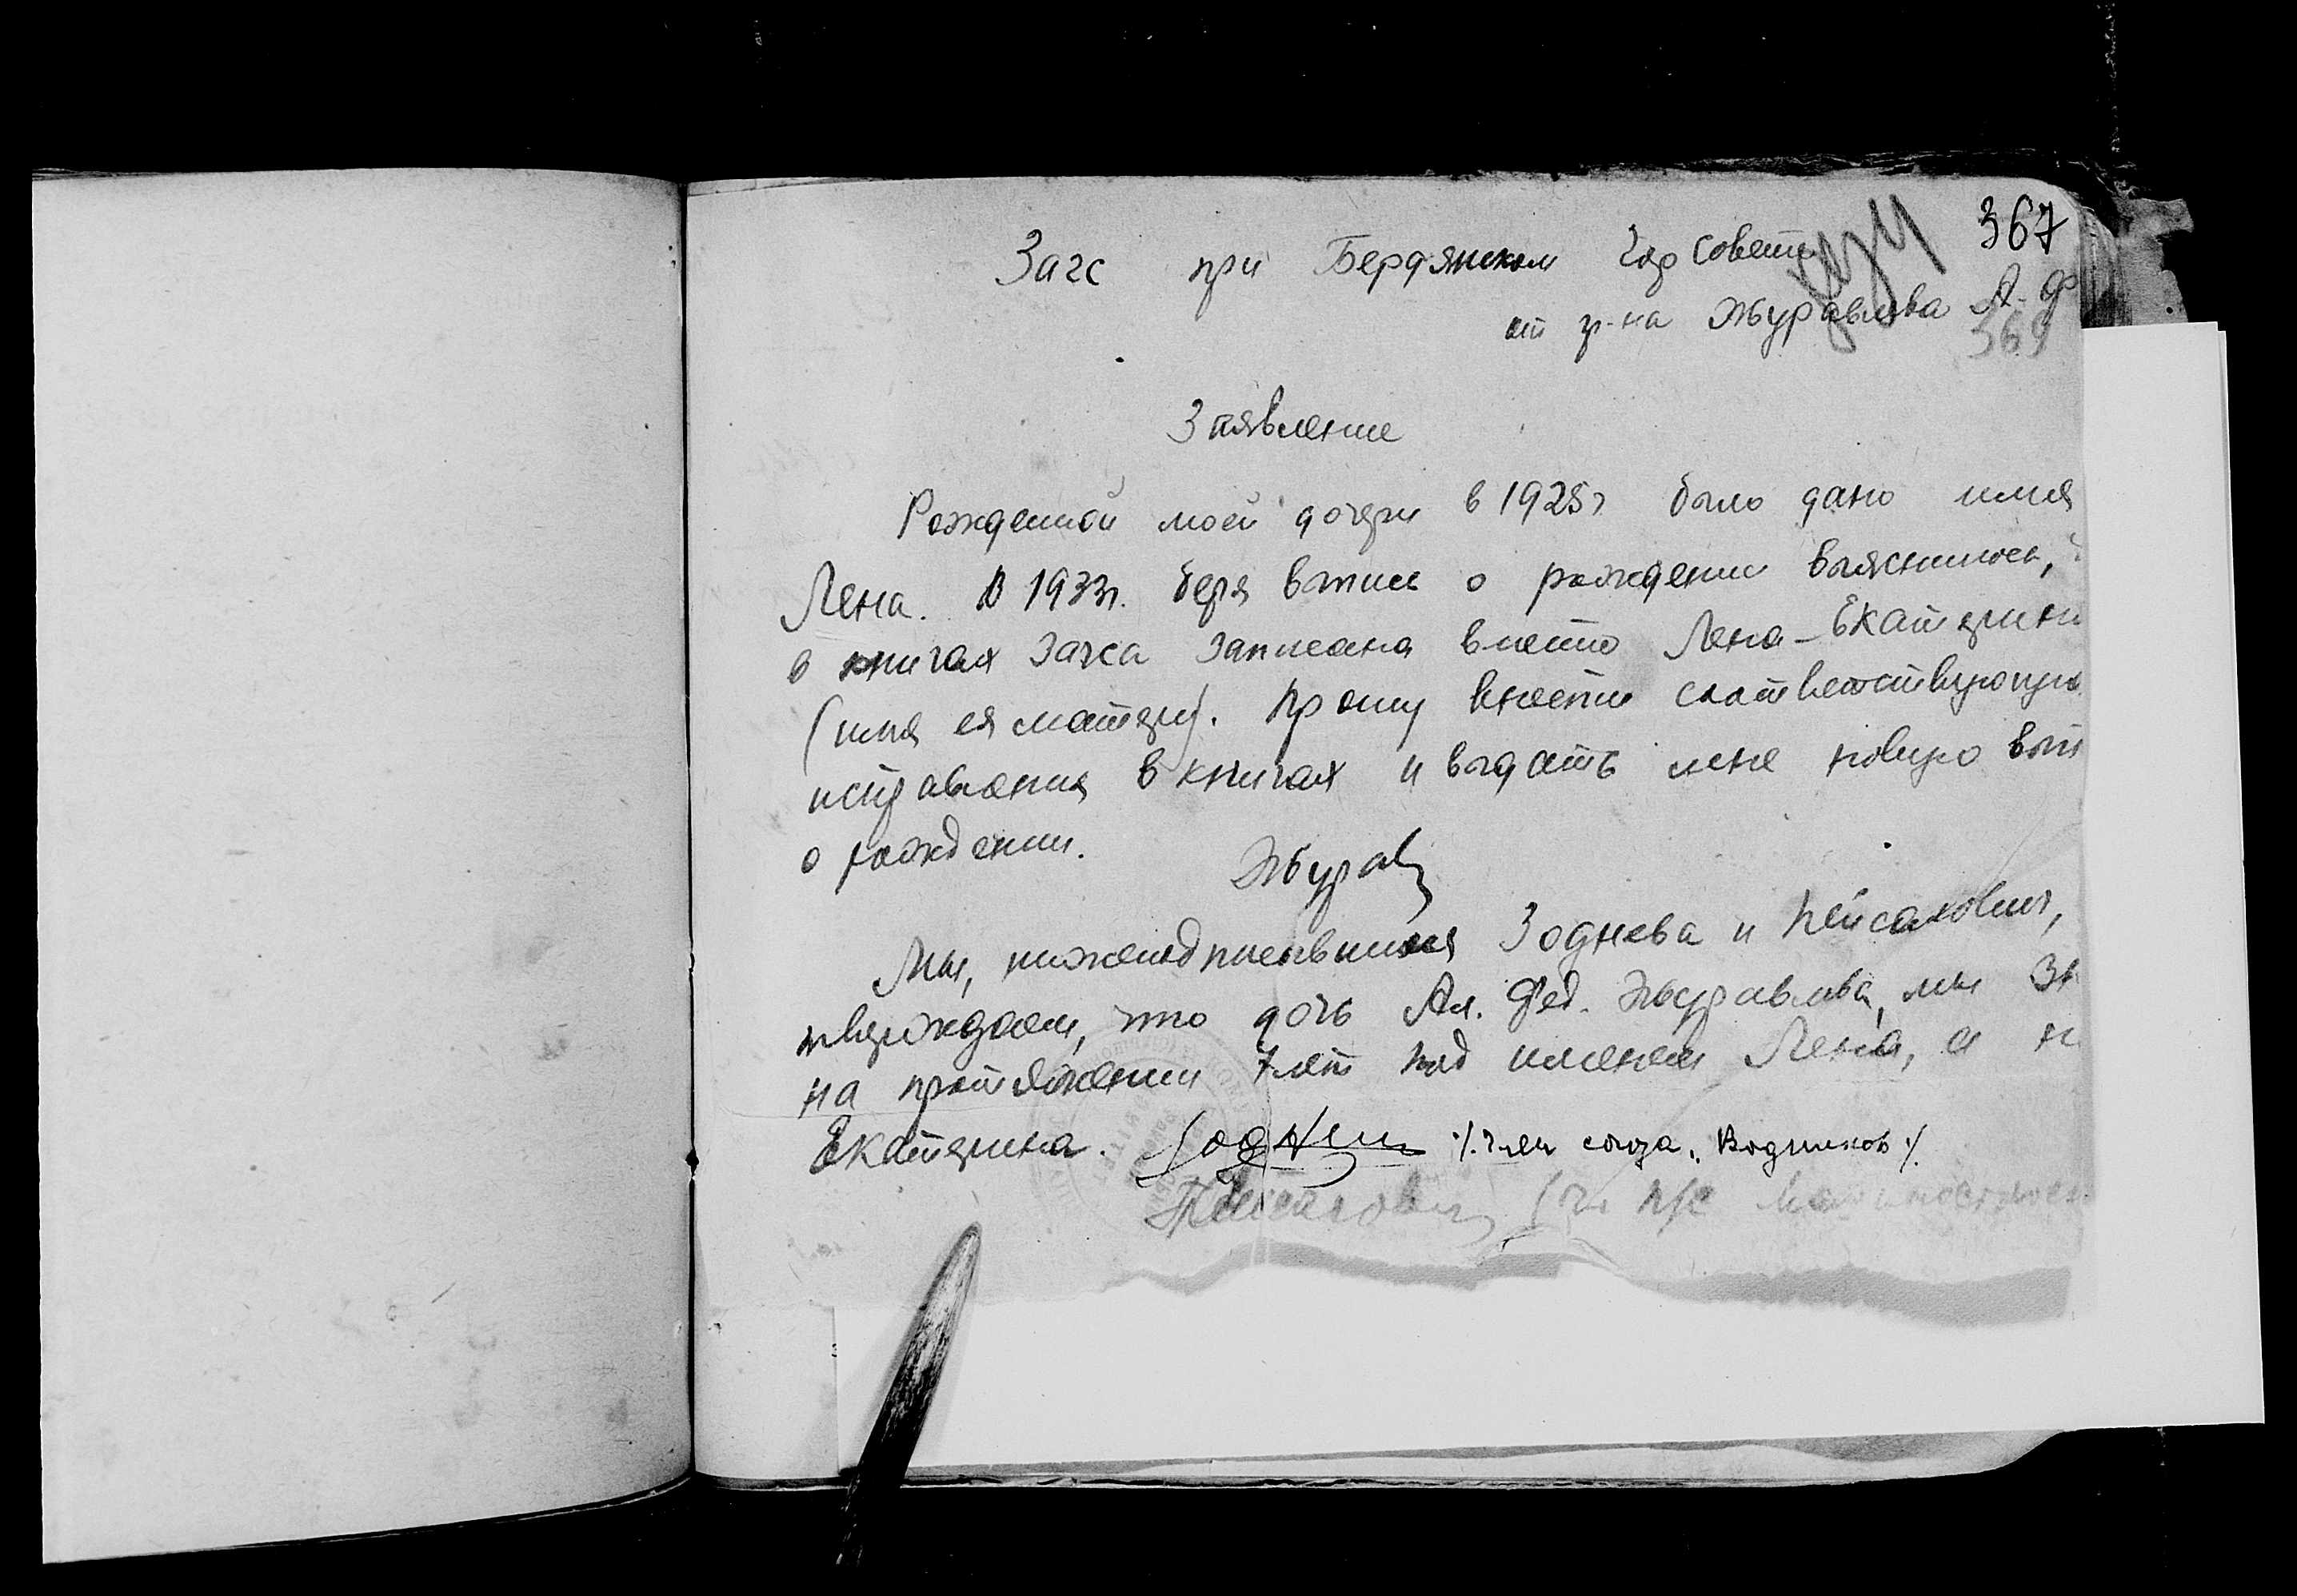 367
Загс при Бердянском Гор Совете
от гр-на Журавлева А. Ф
369
Заявление
Рожденной моей дочери в 1925г было дано имя
Лена. В 1933г. беря выпись о рождении выяснилось,
в книгах Загса записана вместо Лена - Екатерин
(имя ея матери). Прошу внести соответствующую
исправления в книгах и выдать мне новую вып
о рождении.
Журав
Мы, нижеподписавшиеся Зоднева и Пейсахович,
тверждаем, что дочь Ал. Фед. Журавлева, мы зн
на протяжении 7 лет под именем Лена, а н
Екатерина. /. член союза „Водников" /.
Пейсахович